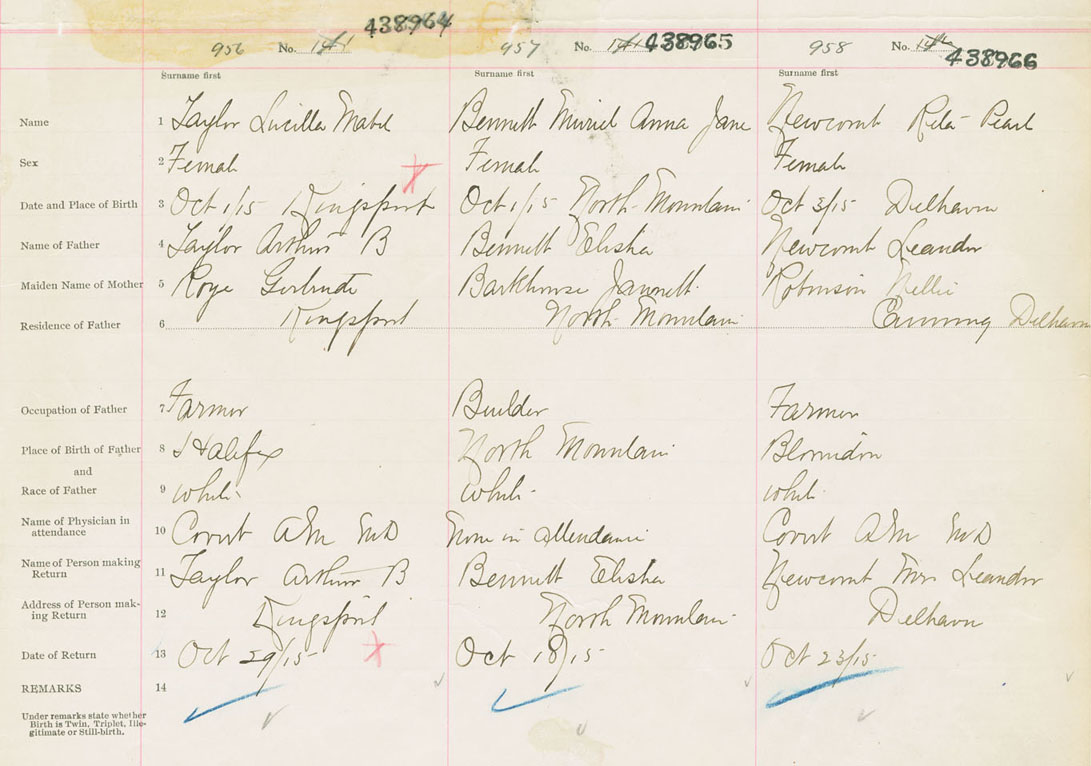 438964
956 No. 957 No. 438965 958 No. 438966
Surname first Surname first Surname first
Name 1 Taylor Lucilla Mabel Bennett Muriel Anna Jane Newcomb Reta Pearl
Sex 2 Female Female Female
Date and Place of Birth 3 Oct 1/15 Kingsport Oct 1/15 North Mountain Oct 3/15 Delhaven
Name of Father 4 Taylor Arthur B Bennett Elisha Newcomb Leander
Maiden Name of Mother 5 Gertrude Barkhouse Jannett Robinson Nellie
Residence of Father 6 Kingsport North Mountain Canning Delhaven
Occupation of Father 7 Farmer Builder Farmer
Place of Birth of Father 8 Halifax North Mountain Blomidon
and
Race of Father 9 white white white
Name of Physician in
attendance 10 Covert A M MD None in attendance Covert A M MD
Name of Person making
Return 11 Taylor Arthur B Bennett Elisha Newcomb Mrs Leander
Address of Person mak-
ing Return 12 Kingsport North Mountain Delhaven
Date of Return 13 Oct 29/15 Oct 18/15 Oct 23/15
REMARKS 14
Under remarks state whether
Birth is Twin, Triplet, Ille-
gitimate or Still-birth.